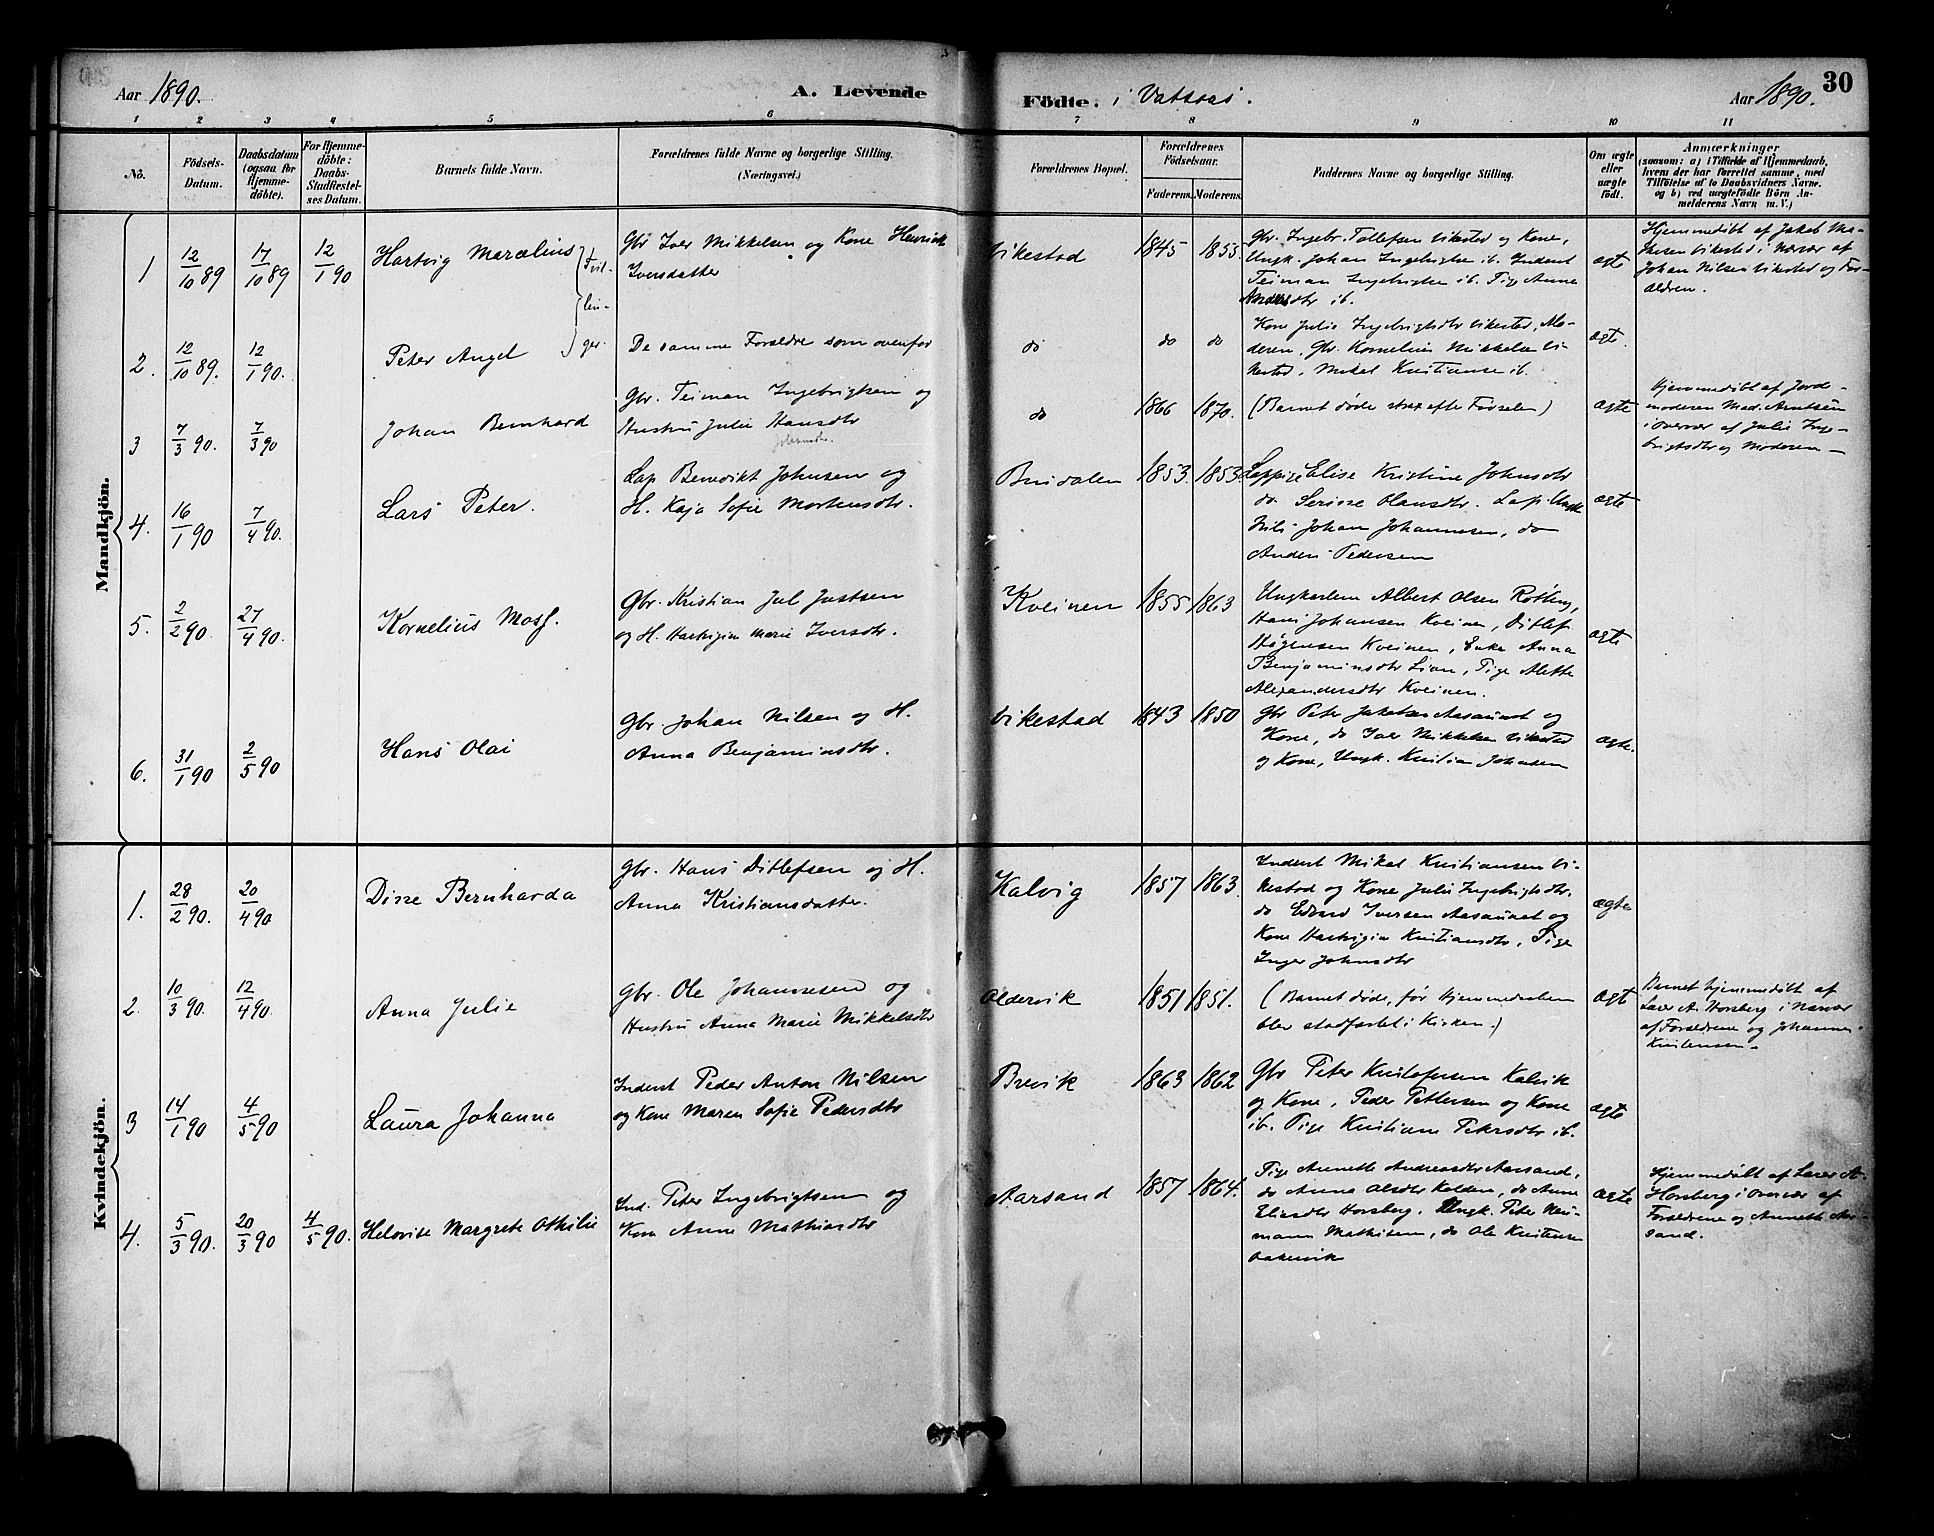 Aar 1890.
A. Levende
Födte. i Vatsaas.
Aar 1890.
30
1 2 3 4 5 6 7 8 9 10 11
No.
Födsels-
Datum.
Daabsdatum
(ogsaa for
Hjemme-
döbte).
For Hjemme-
döbte:
Daabs-
Stadfæstel-
ses Datum.
Barnets fulde Navn.
Forældrenes fulde Navne og borgerlige Stilling.
(Næringsvei.)
Forældrenes Bopæl.
Forældrenes
Födselsaar.
Faderens. Moderens.
Faddernes Navne og borgerlige Stilling.
Om ægte
eller
uægte
födt.
Anmærkninger
(saasom: a) i Tilfælde af Hjemmedaab,
hvem der har forrettet samme, med
Tilföielse af to Daabsvidners Navne.
og b) ved uægtefödte Börn An-
melderens Navn m. V.)
Mandkjön.
1
12/10 89
17/10 89
12/1 90
Hartvig Marcelius
Tvil-
lin-
ger.
Gbr Iver Mikkelsen og Kone Henrik
Iversdatter
Vikestad
1845
1853.
Gbr. Ingebr. Tollefsen Vikested og Kone,
Ungk. Johan Ingebrigtsen ib. Inderst
Teiman Ingebrigtsen ib. Pige Anna
Andersdtr ib.
ægte
Hjemmedöbt af Jakob
Vikested i Nærvær af
Johan Nilsen Vikested og For-
ældren.
2.
12/10 89.
12/1 90.
Peter Angel
De samme Forældre som ovenfor
do
do
do
Kone Julie Ingebrigtsdtr Vikested, Mo-
deren, Gbr. Kornelius Mikkelsen Vi-
kested, Mikal Kristiansen ib.
ægt.
3
7/3 90.
7/3 90
Johan Bernhard
Gbr. Teiman Ingebrigtsen og
Hustru Julie Hansdtr
Johansdtr.
do
1866
1870.
(Barnet døde strax efter Fødselen)
ægte
Hjemmedöbt af Jorde-
moderen Mad. Arntsen
i Overvær af Julie Inge-
brigtsdtr og Moderen
4.
16/1 90
7/4 90.
Lars Peter.
Lap Benedikt Johnsen og
H. Kaja Sofie Mortensdtr.
1853.
1853
Lappige Elise Kristine Johnsdtr
do. Serine Olausdtr. Lap Ungk
Nils Johan Johannesen, do
Anders Pedersen
ægte
5.
2/2 90.
27/4 90.
Kornelius Moss.
Gbr. Kristian Jul Justsen
og H. Hartvigia Marie Iversdtr.
Kveinen
1855
1863
Ungkarlene Albert Olsen Røtting,
Hans Johansen Kveinen, Ditlef
Høgensen Kveinen, Enke Anna
Benjaminsdtr Lian, Pige Alette
Alexandersdtr Kveinen.
ægte
6.
31/1 90
2/5 90
Hans Olai
Gbr Johan Nilsen og H.
Anna Benjaminsdtr.
Vikestad
1843
1850
Gbr Peter Jakobsen Aasaunet og
Kone, do Iver Mikkelsen Vikested
og Kone, Ungk. Kristian Johansen
ægte.
Kvindekjön.
1.
28/2 90.
20/4 90
Disse Bernharda
Gbr. Hans Ditlefsen og H.
Anna Kristiansdatter.
Kalvig
1857
1863.
Inderst Mikal Kristiansen Vi-
kestad og Kone Julie Ingebrigtsdtr.
do Edvard Iversen Aasaunet og
Kone Hartvigia Kristiansdtr, Pige
Inger Johnsdtr
ægte
2.
10/3 90.
12/4 90.
Anna Julie
Gbr. Ole Johannesen og
Hustru Anna Marie Mikkelsdtr
Oldervik
1851
1851.
(Barnet døde, før Hjemmedaaben
blev stadfæstet i Kirken.)
ægt
Barnet hjemmedöbt af
Lærer A. Horsberg i Nærvær
af Forældrene og Johannes
Kristensen.
3
14/1 90
4/5 90
Laura Johanna
Inderst Peder Anton Nilsen
og Kone Maren Sofie Pedersdtr
Brevik
1863
1862
Gbr Peter Kristofersen Kalvik
og Kone, Peder Pettersen og Kone
ib. Pige Kristiane Petersdtr ib.
ægte
4.
5/3 90.
20/3 90
4/5 90.
Helovise Margrete Othilie
Ind. Peter Ingebrigtsen og
Kone Anne Mathiasdtr
Aarsand
1857
1864.
Pige Annette Andreasdtr Aarsand,
do Anna Olsdtr Kolden, do Anne
Eliasdtr Horsberg. Ungk. Peter Neu-
mann Mathisen, do Ole Kristensen
ægte
Hjemmedöbt af Lærer A.
Horsberg i Overvær af
Forældrene og Annette Aar-
sand.